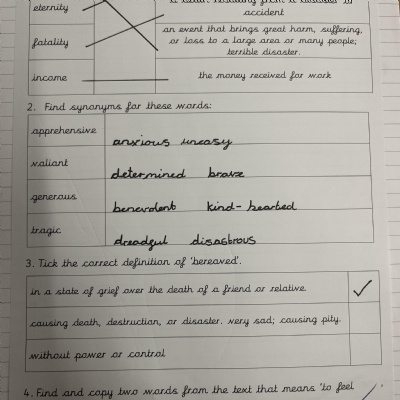 eternity
a death resulting from a disaster or
accident
fatality
an event that brings great harm, suffering,
or loss to a large area or many people;
terrible disaster.
income
the money received for work
2. Find synonyms for these words:
apprehensive
anxious uneasy
valiant
determined brave
generous
benevolent kind-hearted
tragic
dreadful disastrous
3. Tick the correct definition of 'bereaved'.
in a state of grief over the death of a friend or relative.
causing death, destruction, or disaster. very sad; causing pity.
without power or control
4. Find and copy two words from the text that means 'to feel